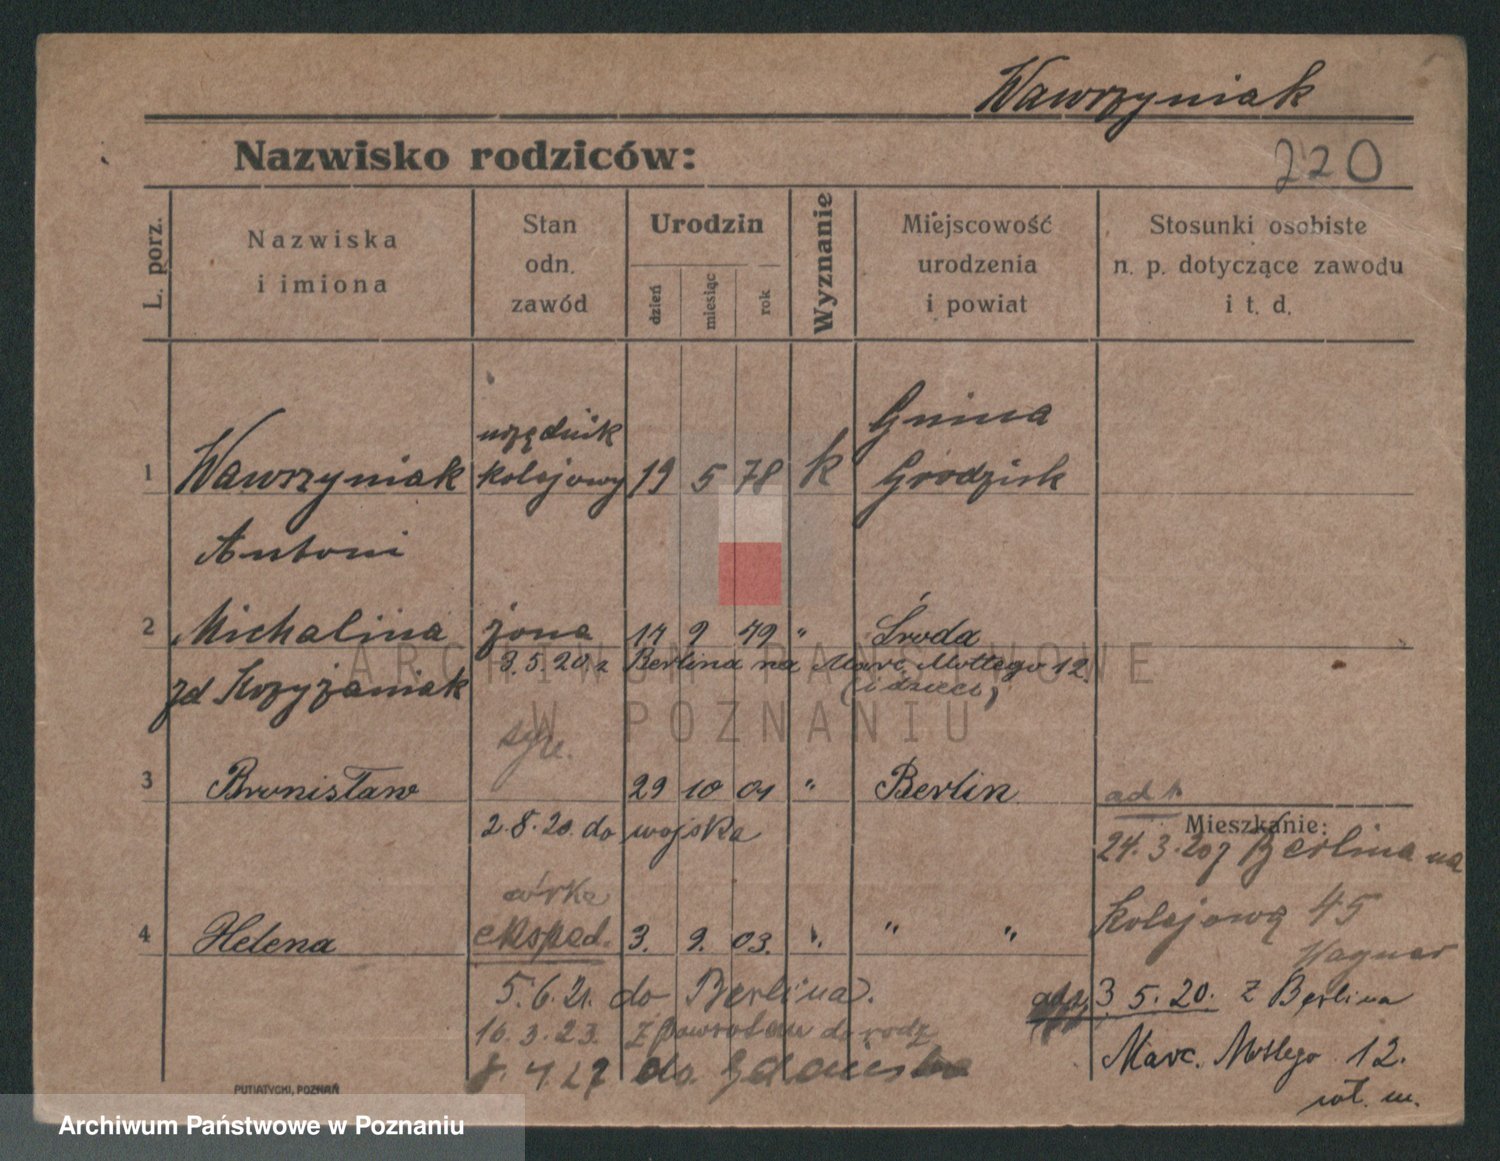 Wawrzyniak
Nazwisko rodziców:
220
L. porz.
Nazwiska
i imiona
Stan
odn.
zawód
Urodzin
dzień
miesiąc
rok
Wyznanie
Miejscowość
urodzenia
i powiat
Stosunki osobiste
n. p. dotyczące zawodu
i t. d.
urzędnik
Gmina
1 Wawrzyniak kolejowy 19 5 78 k Grodzisk
Antoni
2 Michalina żona 14 9 79 " Środa
3.5.20 z Berlina na Marc. Mottego 12.
zd Krzyżaniak (i dzieci)
3 Bronisław 29 10 01 " Berlin
Mieszkanie:
2.8.20. do wojska
24.3.20 z Berlina na
córka
Kolejową 45
4 Helena eksped. 3. 9. 03. " " "
Wagner
5.6.21. do Berlina.
3 5.20. z Berlina
10.3.23. z powrotem do rodz
Marc. Mottego 12.
8.4 27 do Gdańska
PUTIATYCKI, POZNAŃ
ARCHIWUM PAŃSTWOWE
W POZNANIU
Archiwum Państwowe w Poznaniu